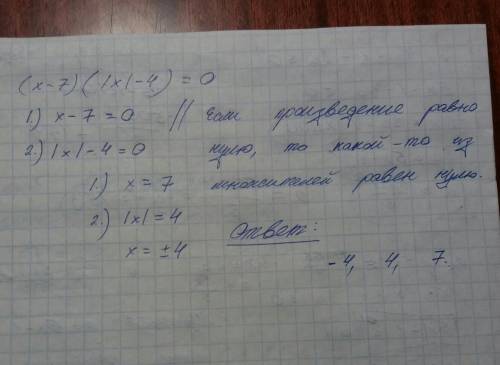 (x-7)(|x|-4) = 0
1.) x-7=0 // Если произведение равно
2.) |x|-4=0 нулю, то какой-то из
1.) x=7 множителей равен нулю.
2.) |x|=4
x=±4
Ответ:
-4, 4, 7.